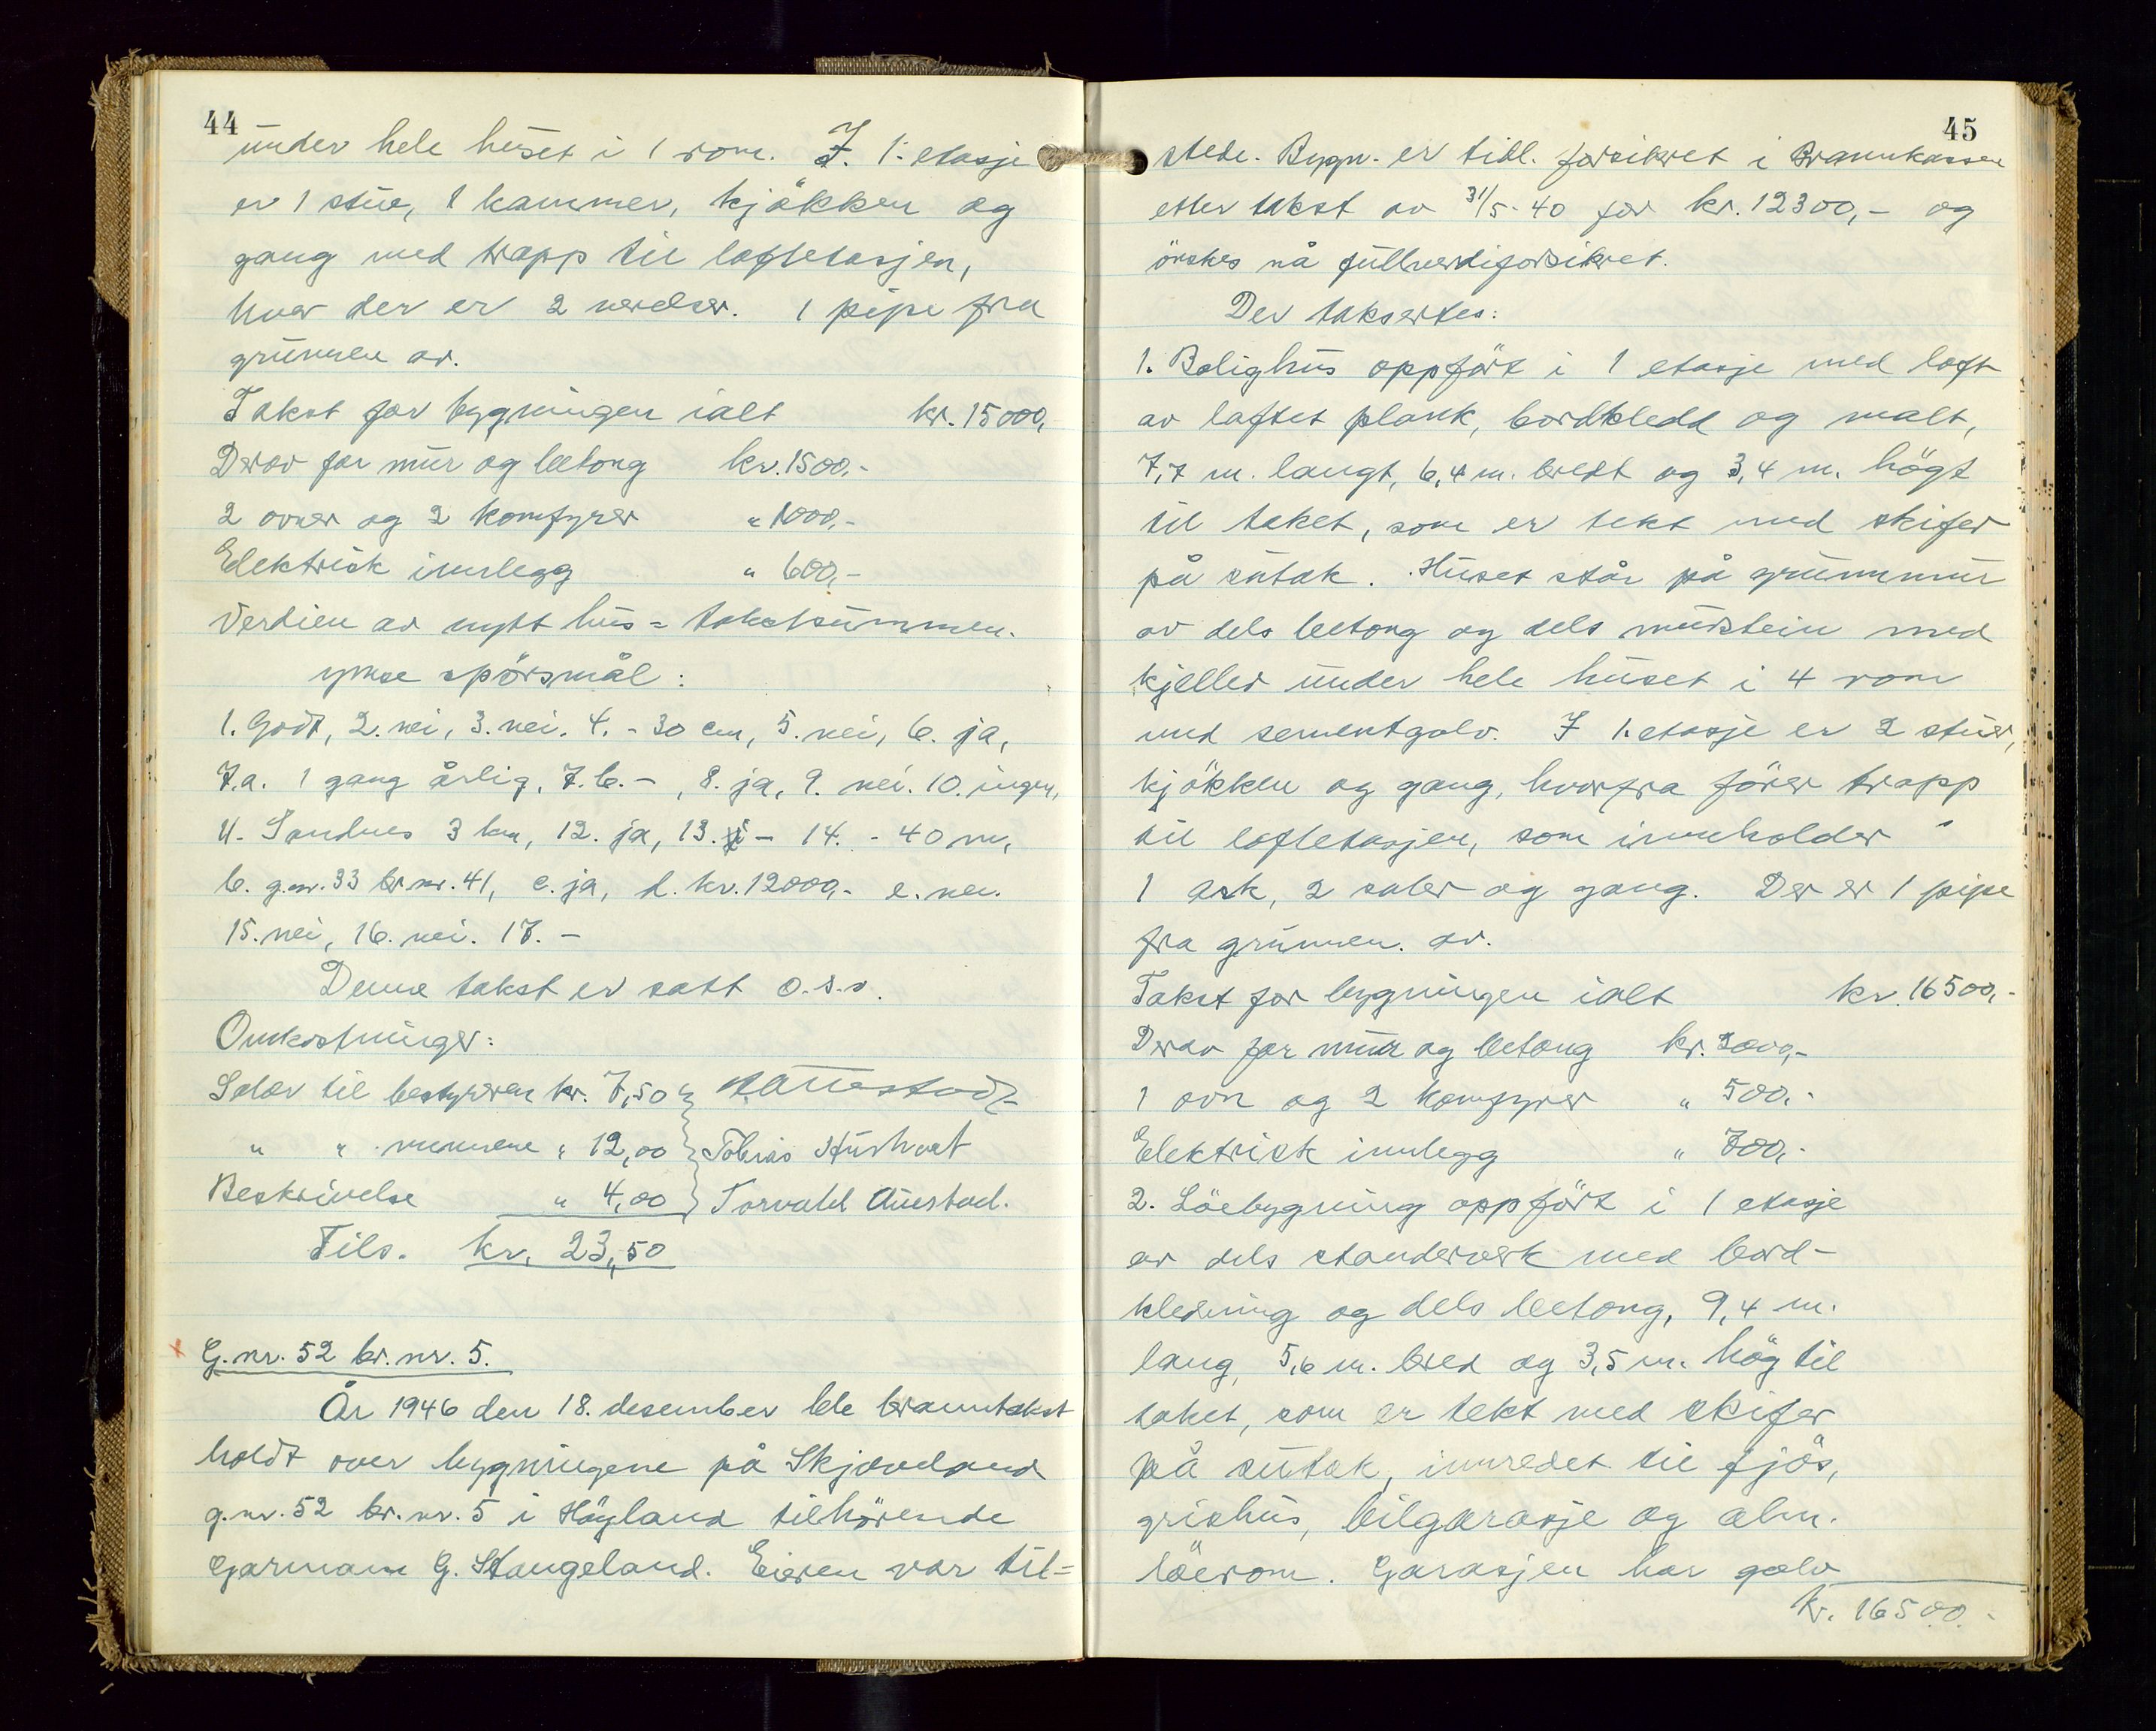 44
under hele huset i 1 rom. I. 1. etasje
er 1 stue, 1 kammer, kjökken og
gang med trapp til loftetasjen,
hvor der er 2 værelser. 1 pipe fra
grunnen av.
Takst for bygningen ialt kr. 15000,
Derav for mur og betong kr. 1500,-
2 ovner og 2 komfyrer " 1000,-
Elektrisk innlegg " 600,-
Verdien av nytt hus = takstsummen.
Ymse spörsmål:
1. Godt, 2. nei, 3. nei. 4. - 30 cm, 5. nei, 6. ja,
7.a. 1 gang årlig, 7.b. -, 8. ja, 9. nei. 10. ingen,
11. Sandnes 3 km, 12. ja, 13. - 14. - 40 m,
b. g.nr. 33 br.nr. 41, c. ja, d. kr. 12000,- e. nei.
15. nei, 16. nei. 17. -
Denne takst er satt o.s.v.
Omkostninger:
Salær til bestyreren kr. 7,50
" " mennene " 12,00 Tobias Hushovt
Beskrivelse " 4,00 Torvald Austad.
Tils. kr. 23,50
G.nr. 52 br.nr. 5.
År 1946 den 18. desember ble branntakst
holdt over bygningene på Skjæveland
g.nr. 52 br.nr. 5 i Höyland tilhörende
Garmann G. Stangeland. Eieren var til=
45
stede. Bygn. er tidl. forsikret i Brannkassen
etter takst av 31/5-40 for kr. 12300,- og
önskes nå fullverdiforsikret.
Der taksertes:
1. Bolighus oppfört i 1 etasje med loft
av laftet plank, bordkledd og malt,
7,7 m. langt, 6,4 m. bredt og 3,4 m. högt
til taket, som er tekt med skifer
på sutak. Huset står på grunnmur
av dels betong og dels murstein med
kjeller under hele huset i 4 rom
med sementgolv. I 1. etasje er 2 stuer,
kjökken og gang, hvorfra förer trapp
til loftetasjen, som inneholder
1 ark, 2 saler og gang. Der er 1 pipe
fra grunnen av.
Takst for bygningen ialt kr. 16500,-
Derav for mur og betong kr. 3000,-
1 ovn og 2 komfyrer " 500,-
Elektrisk innlegg " 700,-
2. Löebygning oppfört i 1 etasje
av dels standerverk med bord-
kledning og dels betong, 9,4 m.
lang, 5,6 m. bred og 3,5 m. hög til
taket, som er tekt med skifer
på sutak, innredet til fjös,
grishus, bilgarasje og alm.
löerom. Garasjen har golv
kr. 16500.-